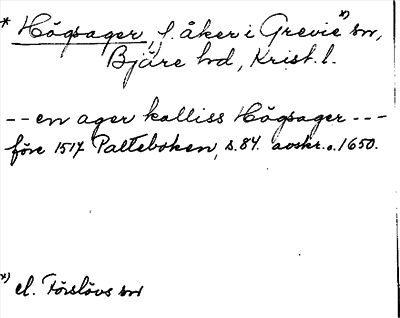 * Högsager, f. åker i Grevie *) sn,
Bjäre hd, Krist. l.
-- en ager kalliss Högsager ---
före 1517 Palteboken, s. 84. avskr. o. 1650.
*) el. Förslövs sn